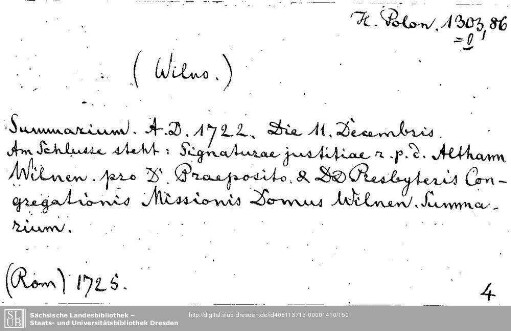 H. Polon. 1303, 86
(Wilno.)
Summarium. A.D. 1722. Die 11. Decembris.
Am Schlusse steht: Signaturae justitiae r. p. d. Althann
Wilnen. pro D. Praeposito & DD Presbyteris Con-
gregationis Missionis Domus Wilnen. Summa-
rium.
(Rom) 1725.
4
Sächsische Landesbibliothek –
Staats- und Universitätsbibliothek Dresden